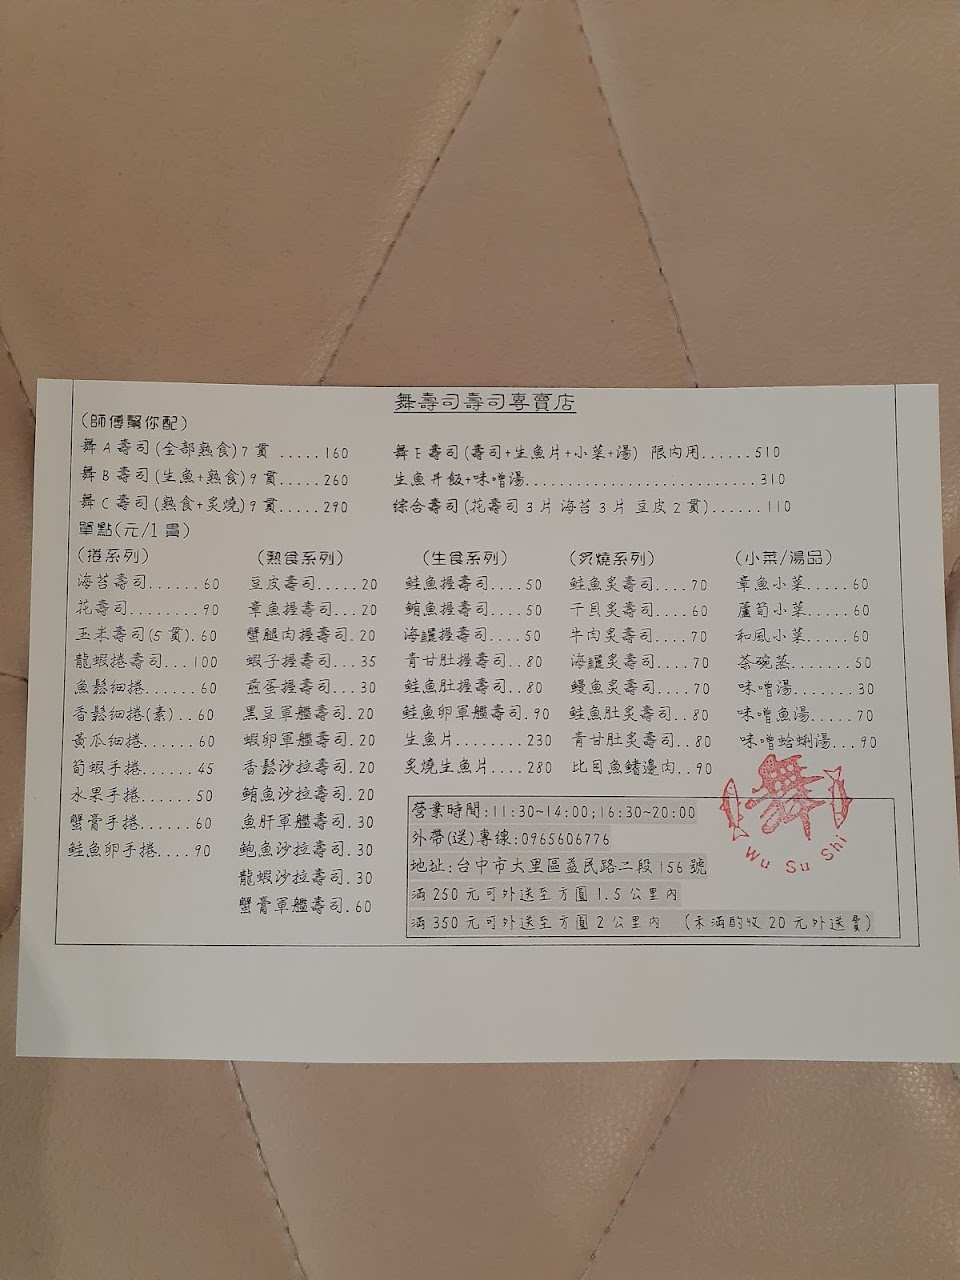 舞壽司壽司專賣店
(師傅幫你配)
舞A壽司(全部熟食)7貫 .....160
舞B壽司(生魚+熟食)9貫.....260
舞C壽司(熟食+炙燒)9貫.....290
舞E壽司(壽司+生魚片+小菜+湯) 限內用......510
生魚丼飯+味噌湯..........................310
綜合壽司(花壽司3片海苔3片豆皮2貫)......110
單點(元/1貫)
(捲系列)
海苔壽司......60
花壽司........90
玉米壽司(5貫).60
龍蝦捲壽司...100
魚鬆細捲......60
香鬆細捲(素)..60
黃瓜細捲......60
筍蝦手捲......45
水果手捲......50
蟹膏手捲......60
鮭魚卵手捲....90
(熟食系列)
豆皮壽司.....20
章魚握壽司...20
蟹腿肉握壽司.20
蝦子握壽司...35
煎蛋握壽司...30
黑豆軍艦壽司.20
蝦卵軍艦壽司.20
香鬆沙拉壽司.20
鮪魚沙拉壽司.20
魚肝軍艦壽司.30
鮑魚沙拉壽司.30
龍蝦沙拉壽司.30
蟹膏軍艦壽司.60
(生食系列)
鮭魚握壽司....50
鮪魚握壽司....50
海鱺握壽司....50
青甘肚握壽司..80
鮭魚肚握壽司..80
鮭魚卵軍艦壽司.90
生魚片........230
炙燒生魚片....280
(炙燒系列)
鮭魚炙壽司....70
干貝炙壽司....60
牛肉炙壽司....70
海鱺炙壽司....70
鰻魚炙壽司....70
鮭魚肚炙壽司..80
青甘肚炙壽司..80
比目魚鰭邊肉..90
(小菜/湯品)
章魚小菜.....60
蘆筍小菜.....60
和風小菜.....60
茶碗蒸.......50
味噌湯.......30
味噌魚湯.....70
味噌蛤蜊湯...90
營業時間:11:30~14:00;16:30~20:00
外帶(送)專線:0965606776
地址:台中市大里區益民路二段156號
滿250元可外送至方圓1.5公里內
滿350元可外送至方圓2公里內 (未滿酌收20元外送費)
舞
Wu Su Shi